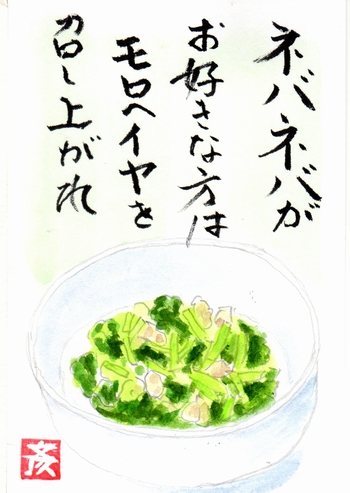 ネバネバが
お好きな方は
モロヘイヤを
召し上がれ